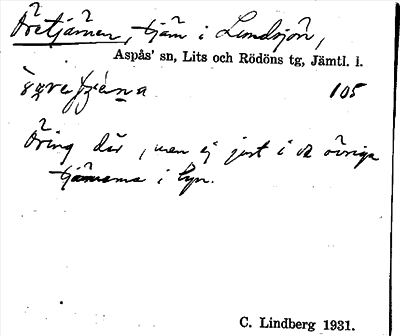 Öretjärnen, tjärn i Landsjön,
Aspås' sn, Lits och Rödöns tg, Jämtl. l.
105
Öring där, men ej just i de övriga
tjärnarna i byn.
C. Lindberg 1931.